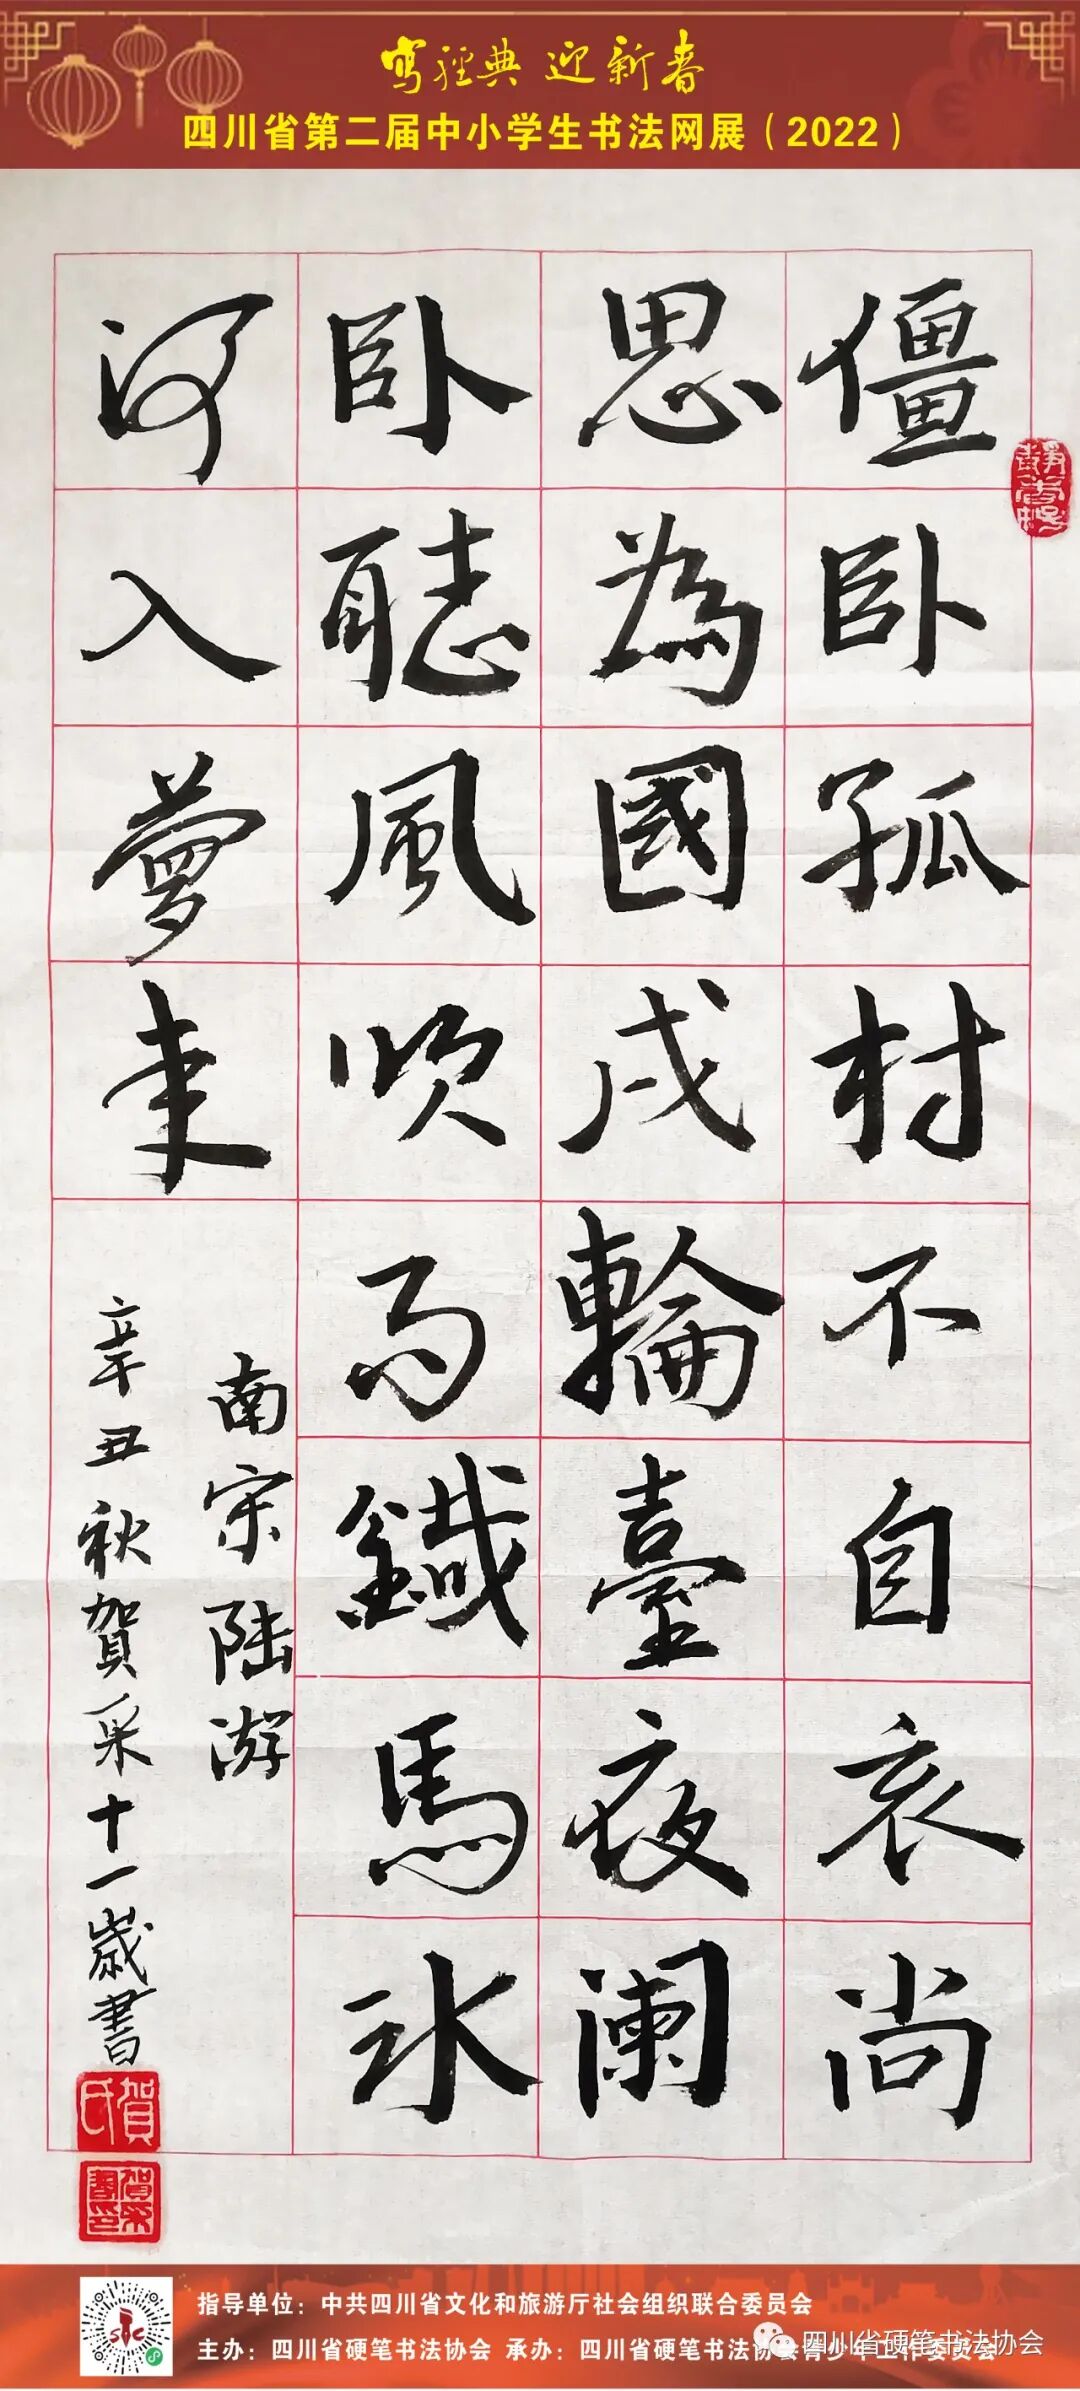 写经典 迎新春
四川省第二届中小学生书法网展（2022）
僵卧孤村不自哀尚
思為國戍輪臺夜闌
卧聽風吹雨鐵馬冰
河入夢来
南宋陆游
辛丑秋賀采十一歲書
賀氏
指导单位：中共四川省文化和旅游厅社会组织联合委员会
主办：四川省硬笔书法协会 承办：四川省硬笔书法协会青少年工作委员会
四川省硬笔书法协会